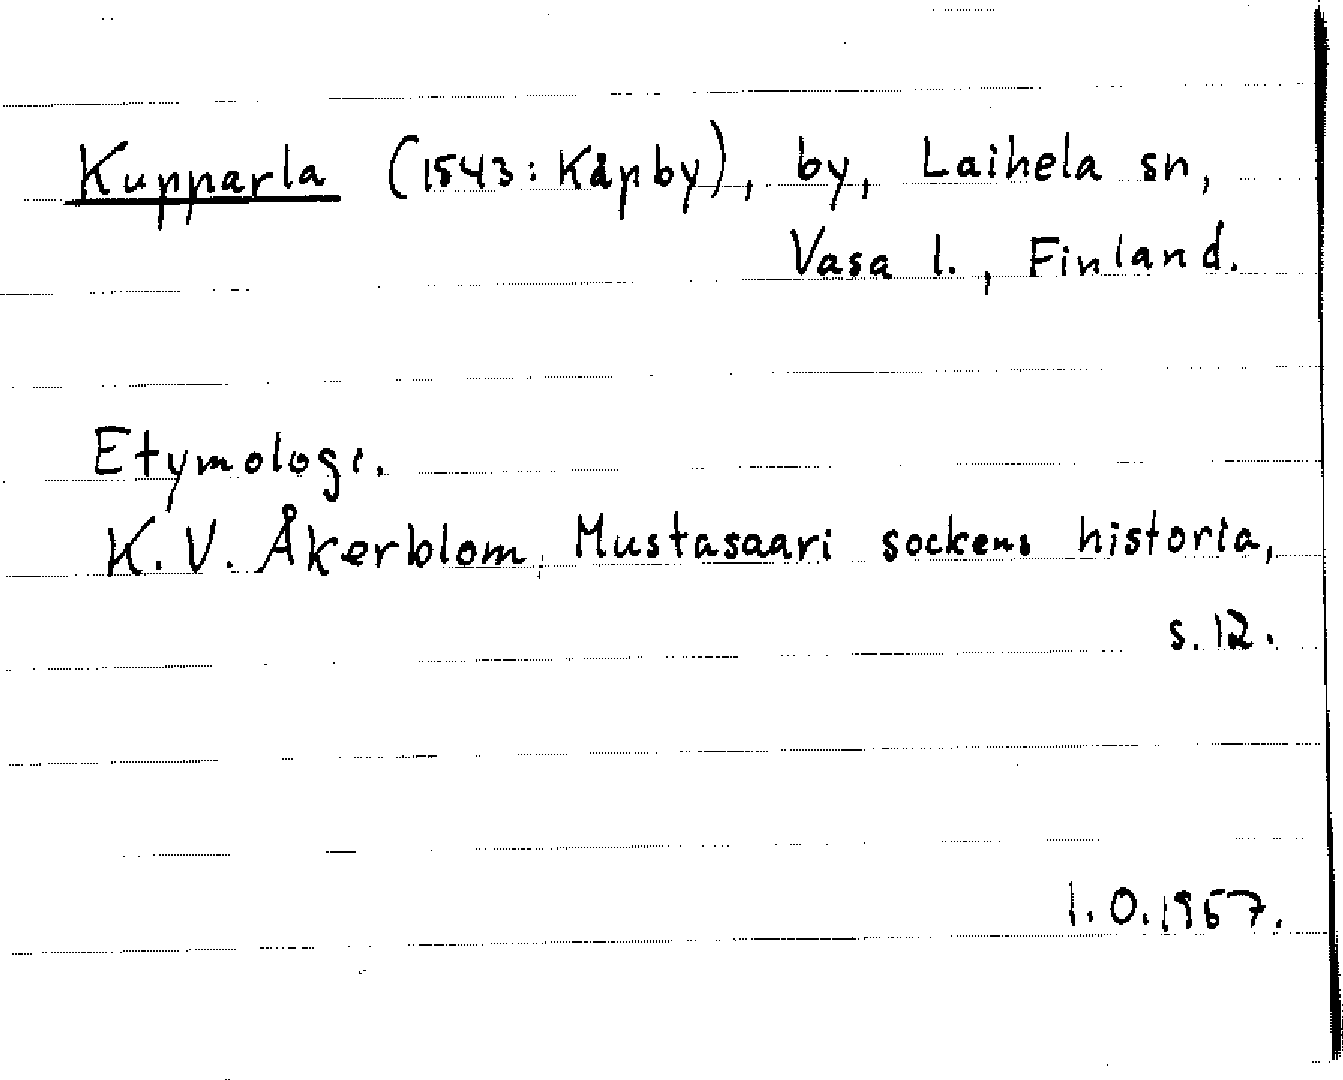 Kupparla (1543: Kåpby), by, Laihela sn,
Vasa l., Finland.
Etymologi.
K. V. Åkerblom, Mustasaari sockens historia,
s. 12.
I. O. 1957.